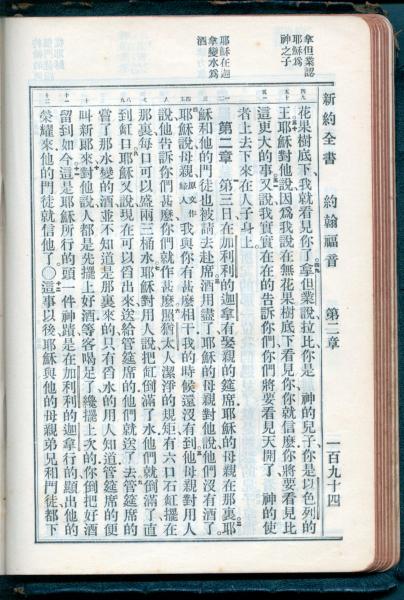 拿但業認
耶穌為
神之子
耶穌在迦
拿變水為
酒
新約全書 約翰福音 第二章 一百九十四
花果樹底下我就看見你了拿但業說拉比你是 神的兒子你是以色列的
王耶穌對他說因為我說在無花果樹底下看見你你就信麼你將要看見比
這更大的事又說我實實在在的告訴你們你們將要看見天開了 神的使
者上去下來在人子身上
第二章 第三日在加利利的迦拿有娶親的筵席耶穌的母親在那裏耶
穌和他的門徒也被請去赴席酒用盡了耶穌的母親對他說他們沒有酒了
耶穌說母親原文作婦人我與你有甚麼相干我的時候還沒有到他母親對用人
說他告訴你們甚麼你們就作甚麼照猶太人潔淨的規矩有六口石缸擺在
那裏每口可以盛兩三桶水耶穌對用人說把缸倒滿了水他們就倒滿了直
到缸口耶穌又說現在可以舀出來送給管筵席的他們就送了去管筵席的
嘗了那水變的酒並不知道是那裏來的只有舀水的用人知道管筵席的便
叫新郎來對他說人都是先擺上好酒等客喝足了纔擺上次的你倒把好酒
留到如今這是耶穌所行的頭一件神蹟是在加利利的迦拿行的顯出他的
榮耀來他的門徒就信他了○這事以後耶穌與他的母親弟兄和門徒都下